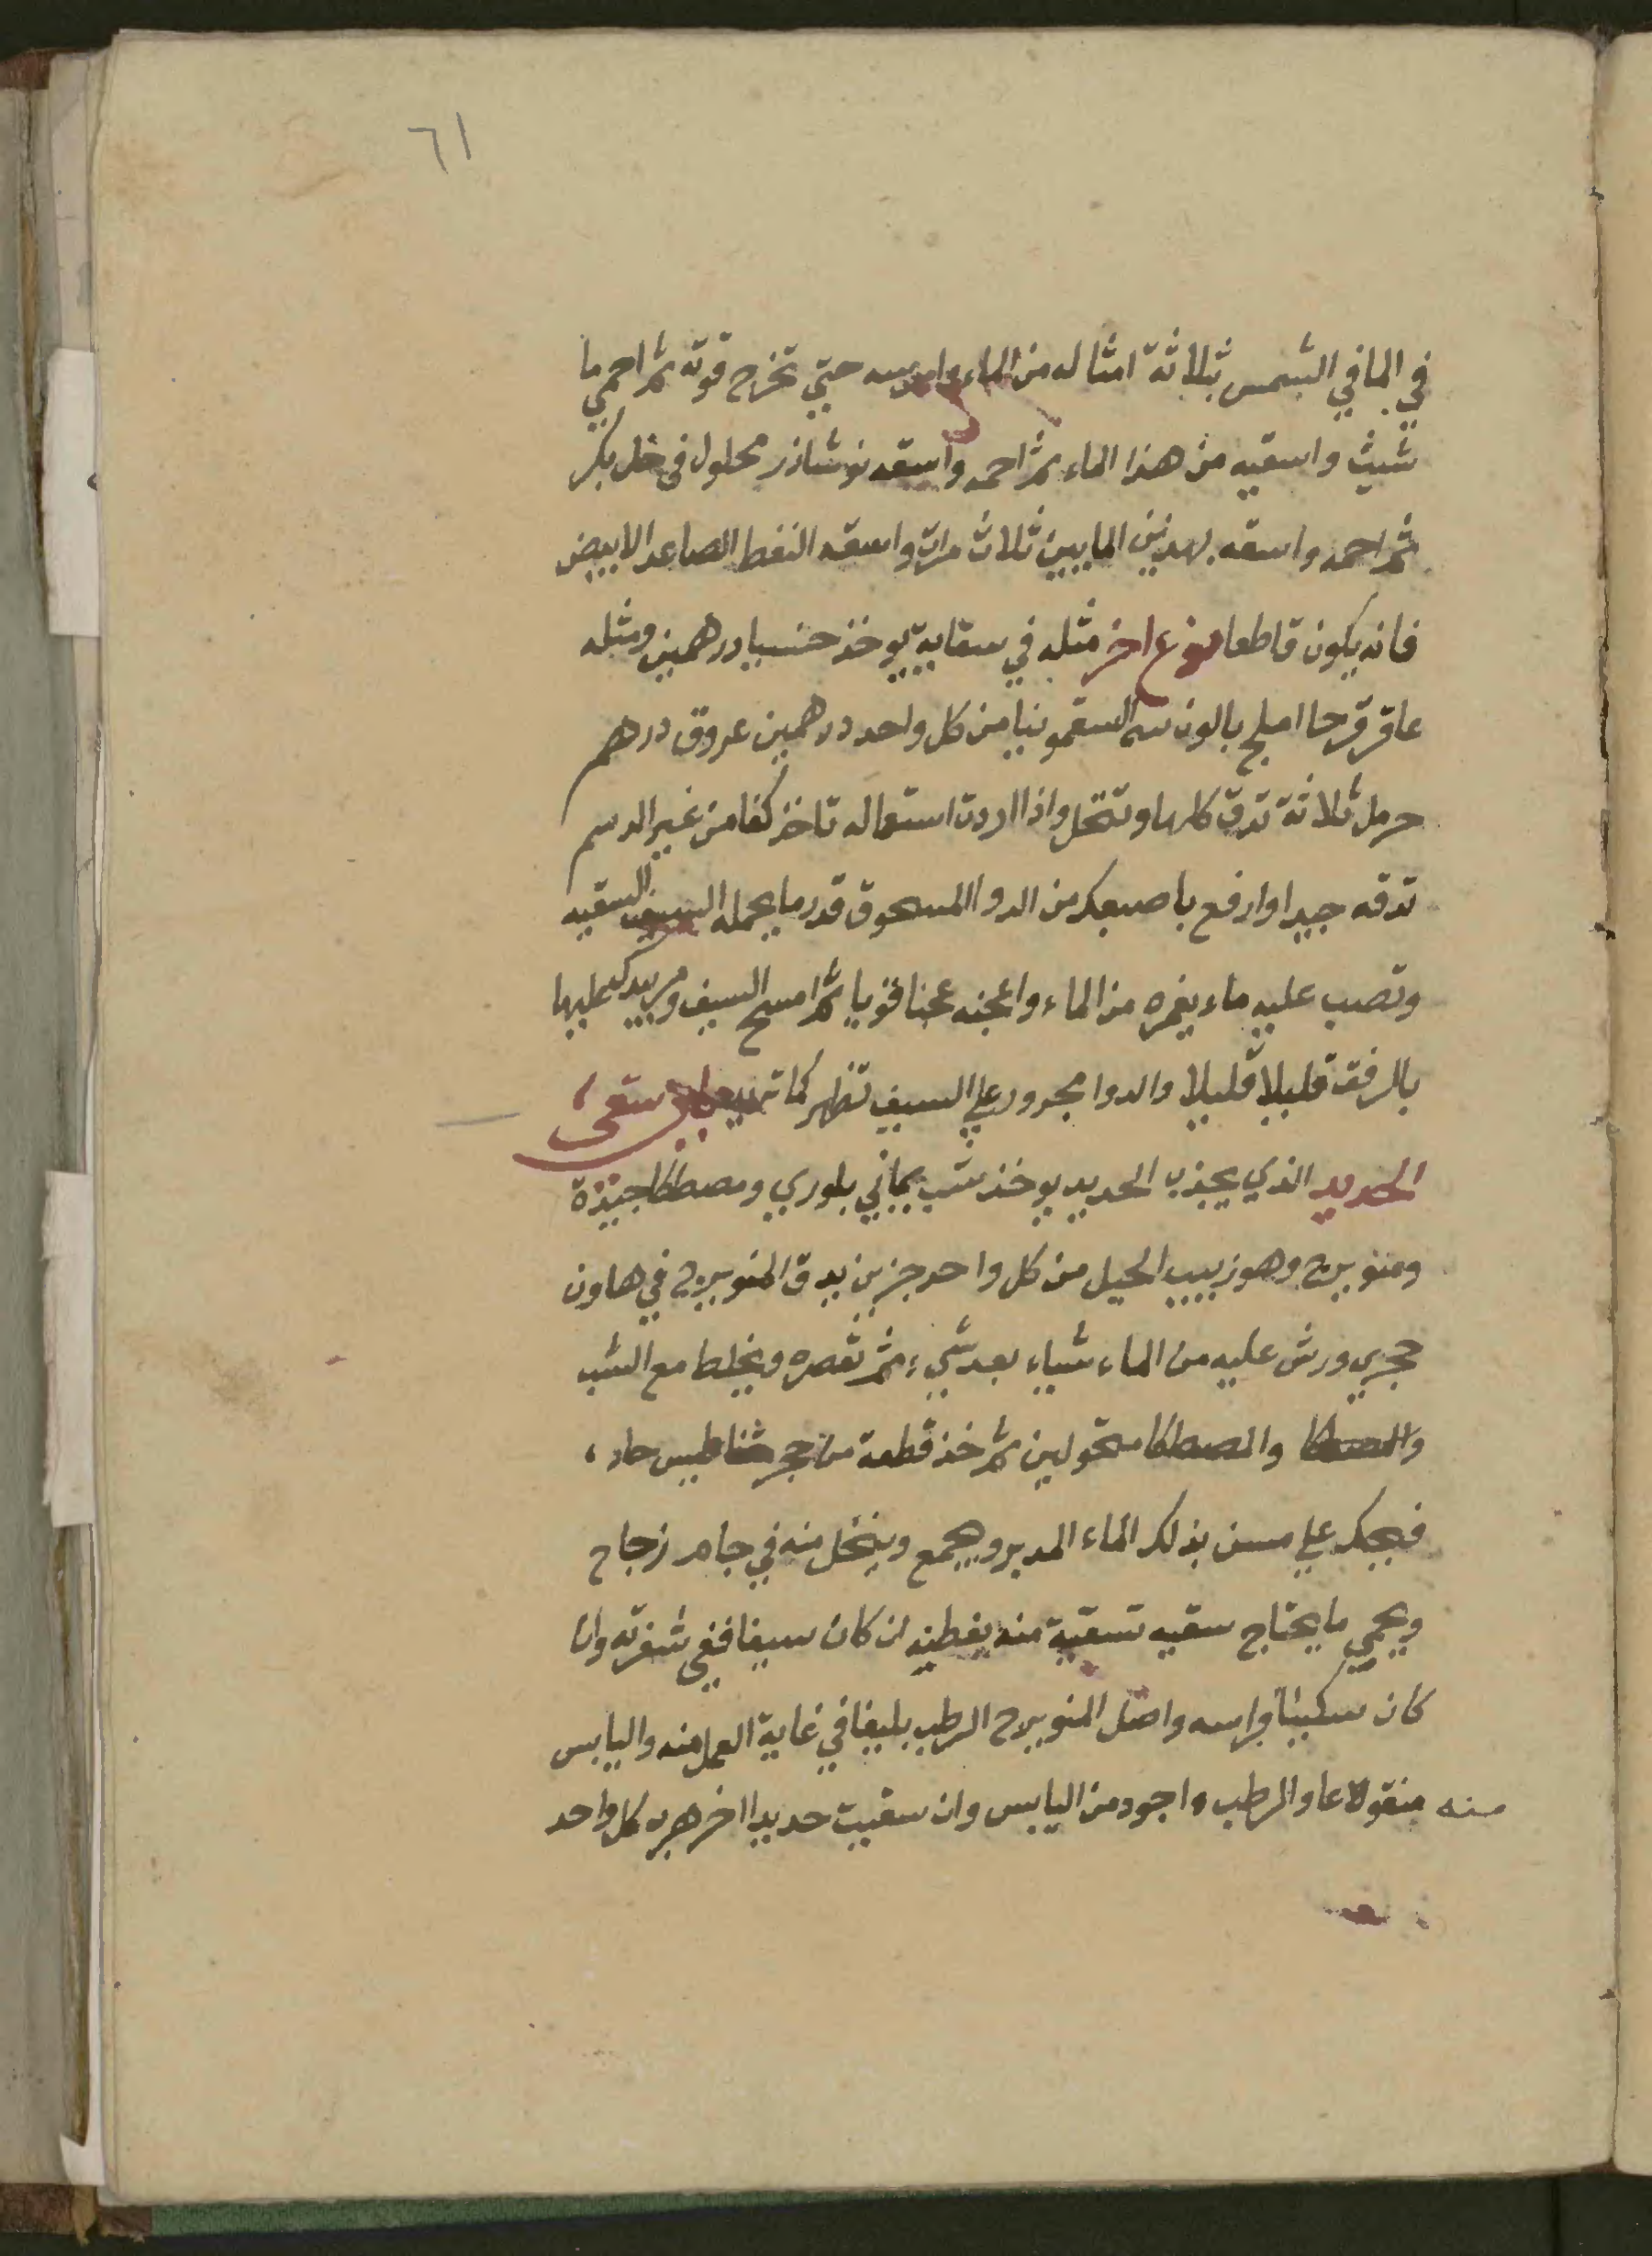 ٦١
في الما في الشمس بثلاثة امثاله من الماء وامرسه حتي تخرج قوته ثم احمي ما
شيت واسقيه من هذا الماء ثم احمه واسقه نوشاذر محلول في خل بكر
ثم احمه واسقه بهدنين المايين ثلاث مرات واسقه النفط الصاعد الابيض
فانه يكون قاطعا نوع اخر مثله في سقاية يوخذ درهمين ومثله
عاقرقرحا املج السقمونيا من كل واحد درهمين عروق درهم
حرمل ثلاثة تدق كلها وتنخل واذا اردت استعماله تاخذ كفا من غير الدسم
تدقه جيدا وارفع باصبعك من الدوا المسحوق قدر ما يحمله السيف السقيه
وتصب عليه ماء يغمره من الماء واعجنه عجنا قويا ثم امسح السيف ومر يدك عليها
بالرفق قليلا قليلا والدوا مجرور علي السيف تظهر كما تريد سقي
الحديد الذي يجذب الحديد يوخذ شب يماني بلوري ومصطكا جيدة
ومنويرج وهو زبيب الجبل من كل واحد جزين يدق المنويرج في هاون
حجري ورش عليه من الماء شياء بعد شيء ثم تعصره ويخلط مع الشب
والمصطكا والمصطكا مسحولين ثم خذ قطعة من حجر مغناطيس حاد
فيحك علي مسن بذلك الماء المدبر ويجمع وينخل منه في جام زجاج
ويحمي ما يحتاج سقيه تسقية منه يغطيه ان كان سيفا ففي شفرته وان
كان سكينا فراسه واصل المنويرج الرطب بليغا في غاية العمل منه واليابس
منه منقولا عا والرطب واجود من اليابس وان سقيت حديدا اخر هرب كل واحد